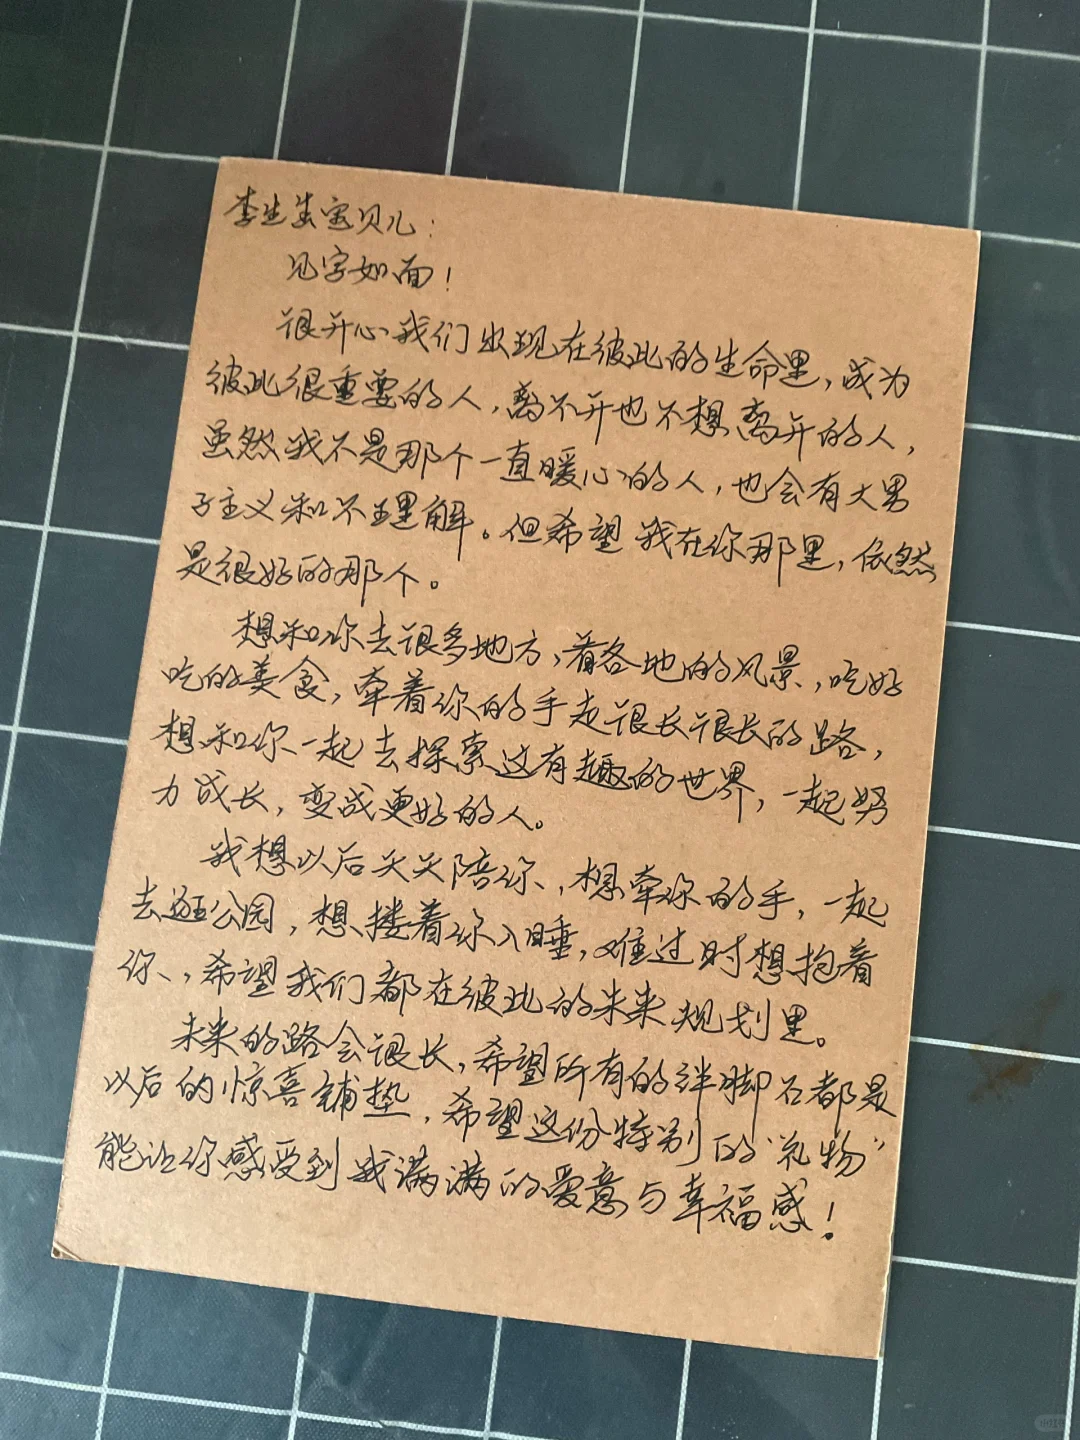 李生生宝贝儿：
见字如面！
很开心我们出现在彼此的生命里，成为
彼此很重要的人，离不开也不想离开的人，
虽然我不是那个一直暖心的人，也会有大男
子主义和不理解。但希望我在你那里，依然
是很好的那个。
想和你去很多地方，看各地的风景，吃好
吃的美食，牵着你的手走很长很长的路，
想和你一起去探索这有趣的世界，一起努
力成长，变成更好的人。
我想以后天天陪你，想牵你的手，一起
去逛公园，想搂着你入睡，难过时想抱着
你，希望我们都在彼此的未来规划里。
未来的路会很长，希望所有的绊脚石都是
以后的惊喜铺垫，希望这份特别的“礼物”
能让你感受到我满满的爱意与幸福感！